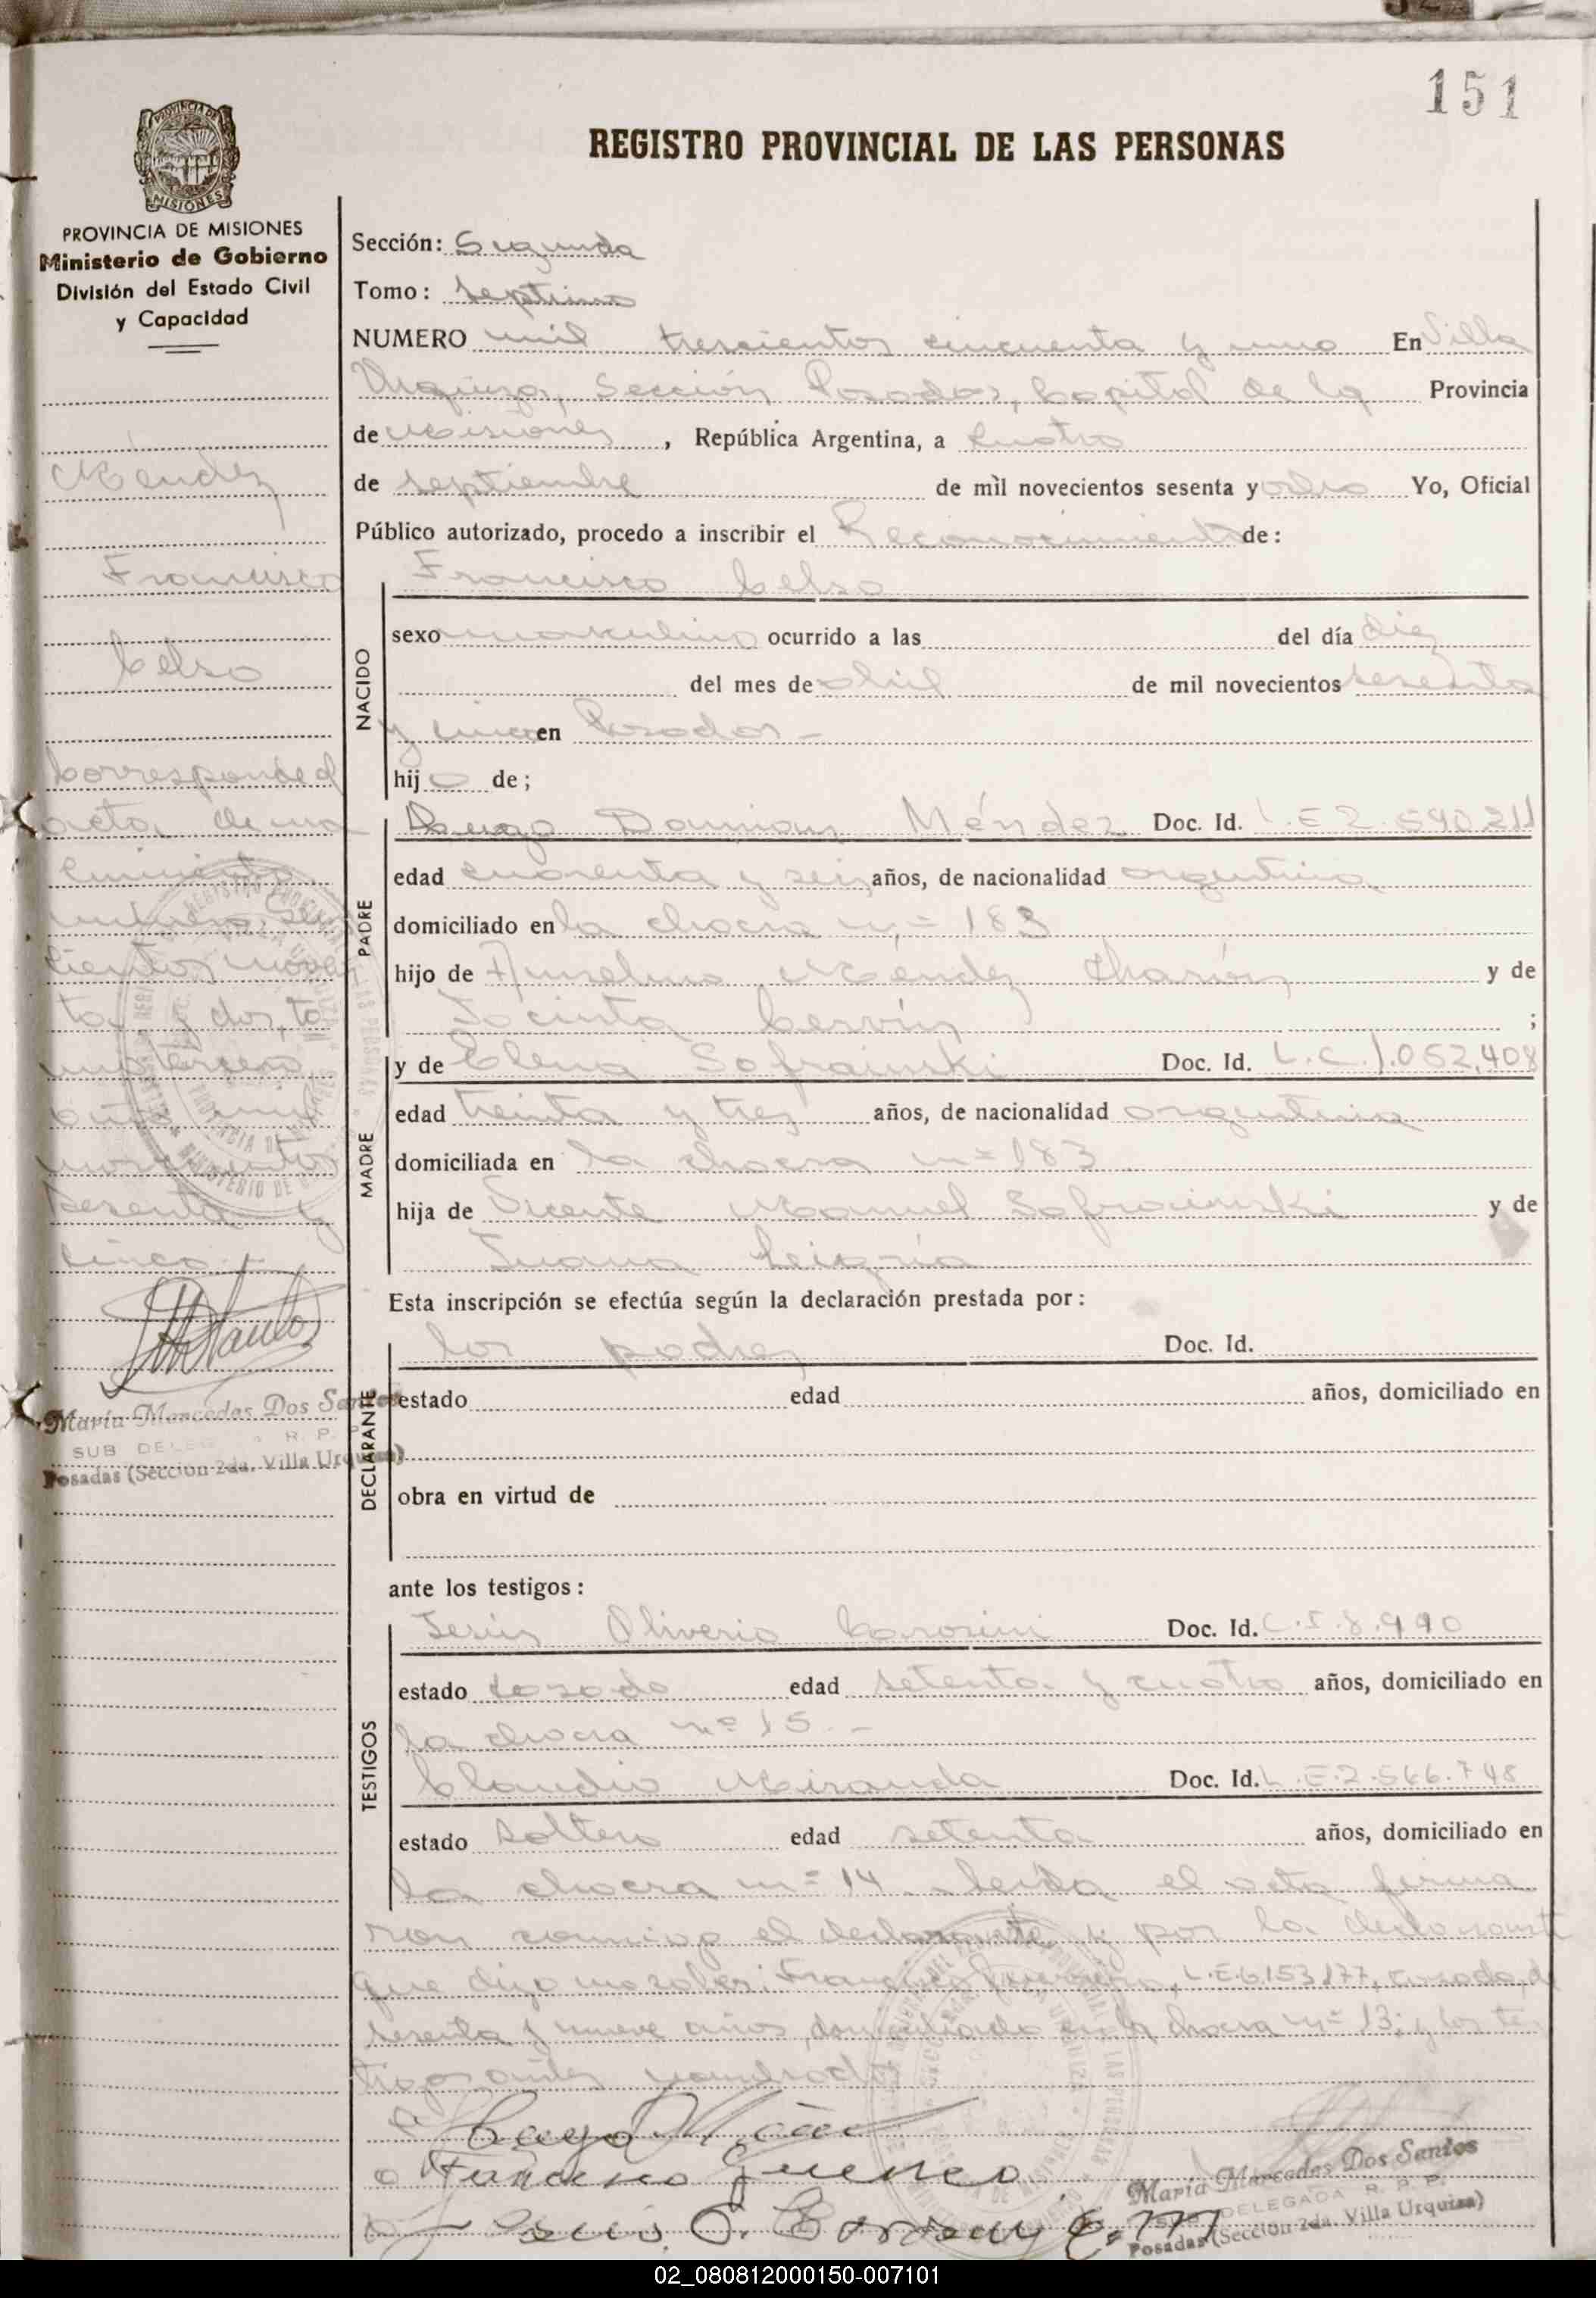 151
REGISTRO PROVINCIAL DE LAS PERSONAS
PROVINCIA DE MISIONES
Ministerio de Gobierno
División del Estado Civil
y Capacidad
Méndez
Francisco
Celso
Corresponde al
acta de na
cimiento
número seis
cientos noven
ta y dos, to
mo tercero
año mil
novecientos
sesenta y
cinco
María Mercedes Dos Santos
SUB DELEGADA R. P. P.
Posadas (Sección 2da. Villa Urquiza)
Sección: Segunda
Tomo: septimo
NUMERO mil trescientos cincuenta y uno En Villa
Urquiza, Sección Posadas, Capital de la Provincia
de Misiones, República Argentina, a cuatro
de septiembre de mil novecientos sesenta y ocho Yo, Oficial
Público autorizado, procedo a inscribir el Reconocimiento de:
Francisco Celso
NACIDO
sexo masculino ocurrido a las del día diez
del mes de abril de mil novecientos sesenta
y cinco en Posadas -
hijo de;
PADRE
Damian Méndez Doc. Id. L.E 2.590.211
edad cuarenta y seis años, de nacionalidad argentina
domiciliado en la chacra nº 183
hijo de Anselmo Méndez y de
Jacinta ;
MADRE
y de Elena Sofrainski Doc. Id. L.C.1.052,408
edad treinta y tres años, de nacionalidad argentina
domiciliada en la chacra nº 183
hija de Vicente Manuel y de
Juana
Esta inscripción se efectúa según la declaración prestada por:
DECLARANTE
los padres Doc. Id.
estado edad años, domiciliado en
obra en virtud de
ante los testigos:
TESTIGOS
Jesús Oliverio Doc. Id. C.I 8.990
estado casado edad setenta y cuatro años, domiciliado en
la chacra nº 15 -
Claudio Miranda Doc. Id. L.E.2.566.748
estado soltero edad setenta años, domiciliado en
la chacra nº 14 Leída el acta firma
ron conmigo el declarante y por la declarante
que dijo no saber: Francisco L.E 6.153.177, casado, de
sesenta y nueve años, domiciliado en la chacra nº 13; y los tes
tigos antes nombrados
Francisco
María Mercedes Dos Santos
SUB DELEGADA R. P. P.
Posadas (Sección 2da. Villa Urquiza)
02_080812000150-007101